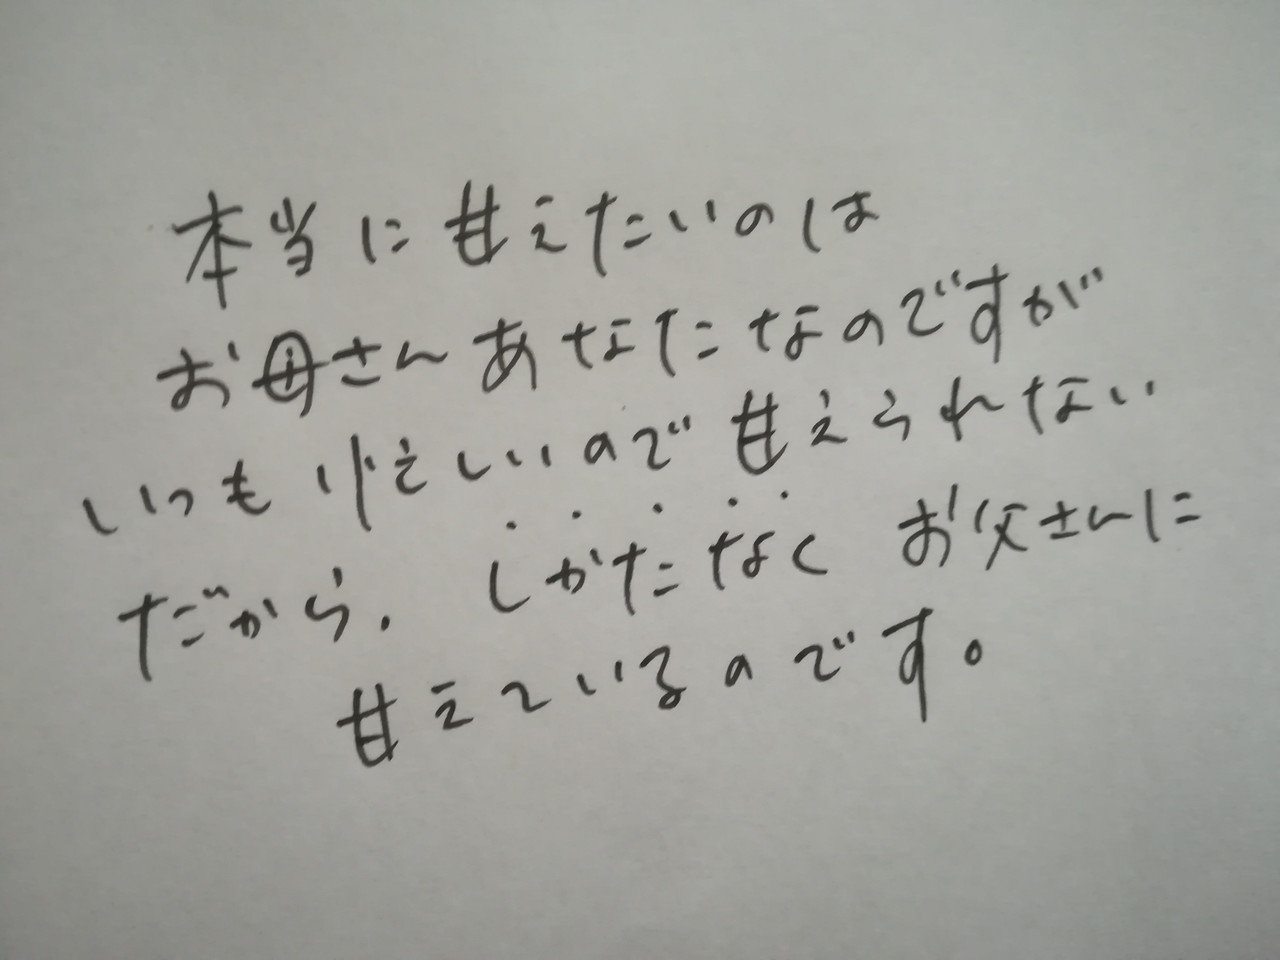 本当に甘えたいのは
お母さんあなたなのですが
いつも忙しいので甘えられない
だから、しかたなくお父さんに
甘えているのです。